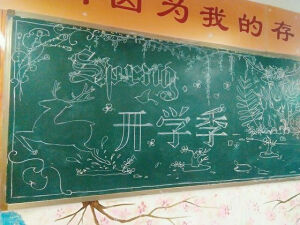 因为我的存
Spring
开学季